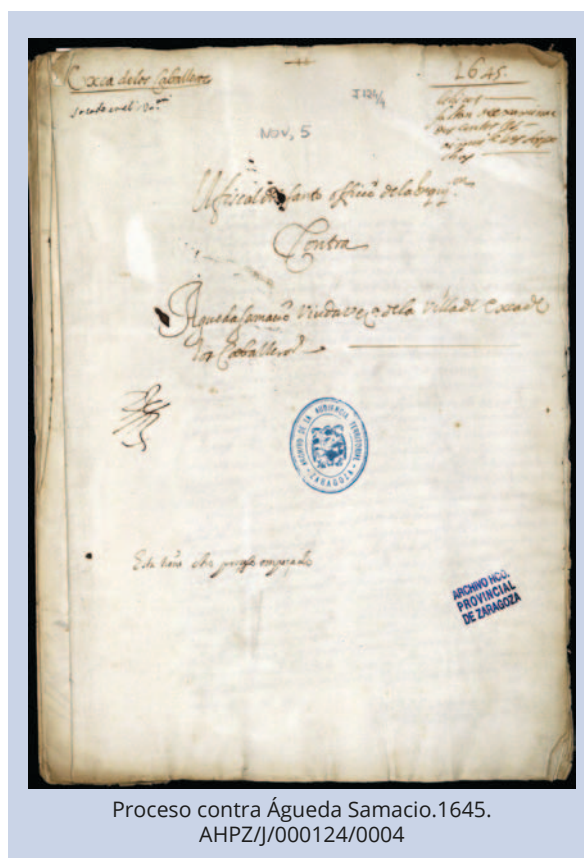 Exea delos Caballeros
1645.
J 124/4
NOV, 5
El fiscal del santo officio dela Inqui.on
Contra
Agueda Samacio Viuda vez.a dela Villa de Exea de
los Caballeros
ARCHIVO DE LA AUDIENCIA TERRITORIAL
ZARAGOZA
Esta tiene otro processo empezado
ARCHIVO HCO.
PROVINCIAL
DE ZARAGOZA
Proceso contra Águeda Samacio.1645.
AHPZ/J/000124/0004